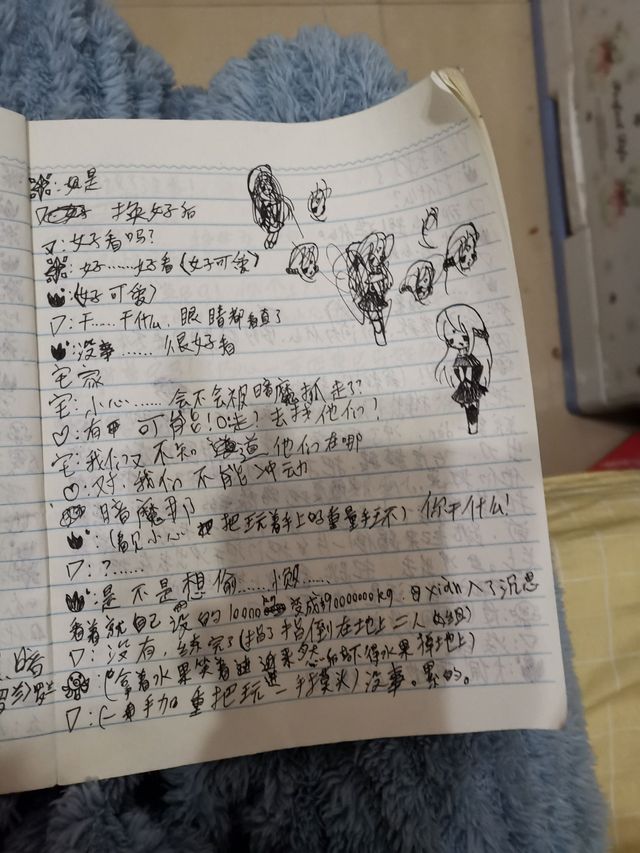 ：姐是
换好后
▽：好看吗？
：好……好看（好可爱）
：（好可爱）
▽：干……干什么，眼睛都看直了
：没事……很好看
宅家
宅：小心……会不会被暗魔抓走了？
♡：有可能！走！去找他们！
宅：我们又不知道他们在哪
♡：对，我们不能冲动
暗魔那
：（看见小心把玩着手上的重量环）你干什么！
▽：？……
：是不是想偷……懒……
看着就自己没的10000变成90000000kg xian入了沉思
▽：没有，练完了（指了指倒在地上二人
：（拿着水果笑着 水果掉地上）
▽：（一手加重把玩一手摸头）没事。累的。
暗